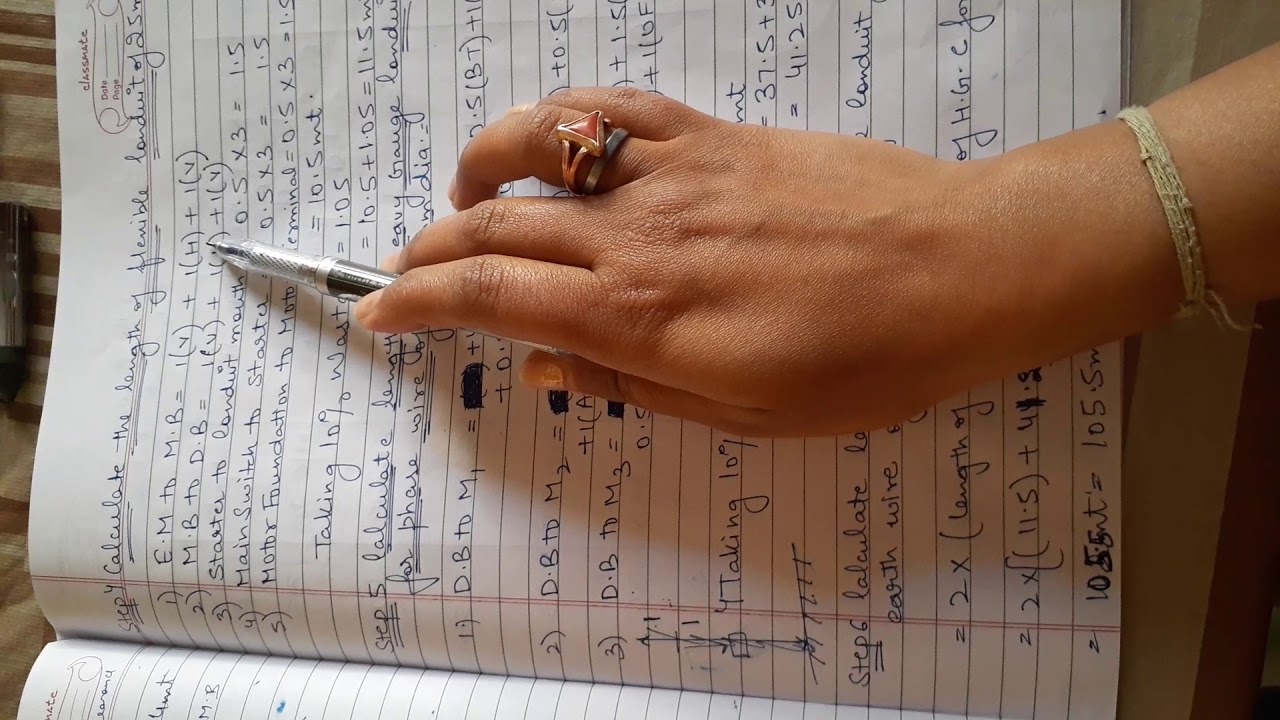 classmate
Date
Page
Step 4 Calculate the length of flexible conduit of 25m
1) E.M to M.B = 1(V) + 1(H) + 1(V)
2) M.B to D.B = 1(V) + 1(H) + 1(V)
3) Starter to conduit mouth 0.5 X 3 = 1.5
4) Main Switch to Starter = 0.5 X 3 = 1.5
5) Motor Foundation to Moto erminal = 0.5 X 3 = 1.5
= 10.5 mt.
Taking 10% Wast = 1.05
= 10.5 + 1.05 = 11.5 m
Step 5 Calculate length eavy Gauge Condu
for phase wire m dia:-
1) D.B to M1 = 0.5(BT) + 1(
+ 0.
2) D.B to M2 = ) + 0.5(
+1(A
3) D.B to M3 = ) + 1.5(
0.5 + 1(OF
Taking 10% mt
= 37.5 + 3
= 41.25
Step 6 Calculate le conduit
earth wire
= 2 X (length of of H.G.C fo
= 2 X (11.5) + 41.
= 105.5mt = 105.5m
classmate
4mt
M.B